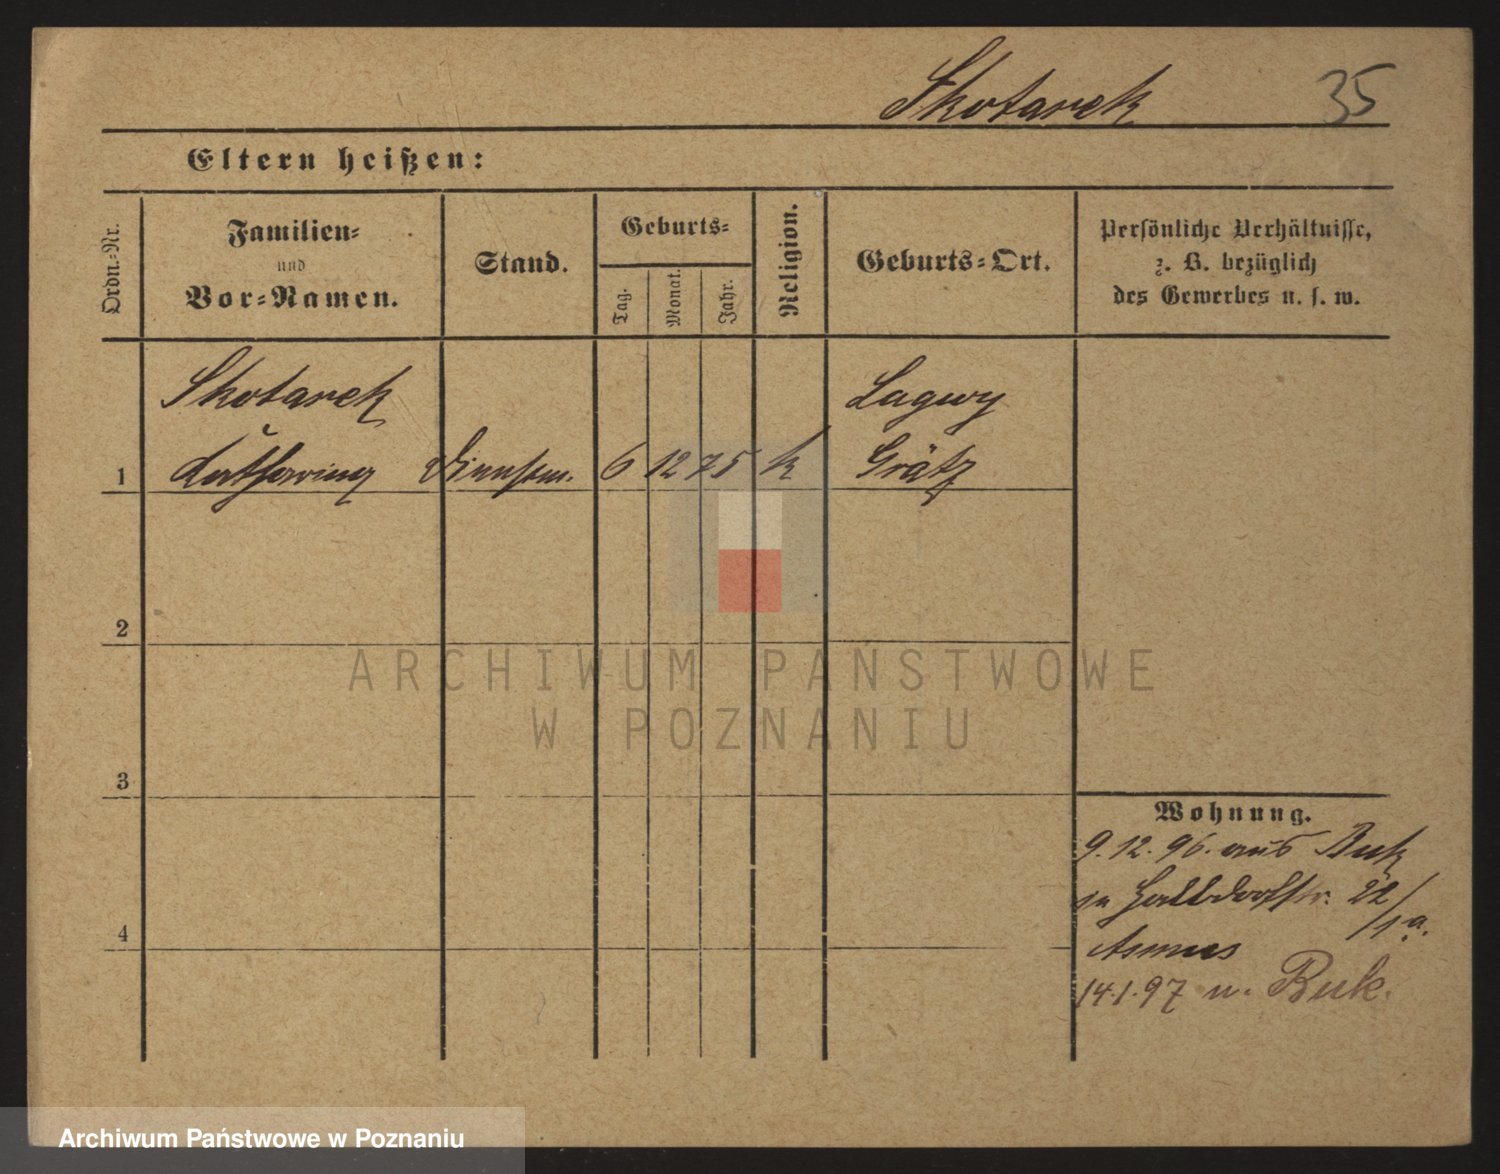 Skotarek 35
Eltern heißen:
Ordn.-Nr.
Familien-
und
Vor-Namen.
Stand.
Geburts-
Tag.
Monat.
Jahr.
Religion.
Geburts-Ort.
Persönliche Verhältnisse,
z. B. bezüglich
des Gewerbes u. s. w.
Skotarek Lagwy
1 Katharina Dienstm. 6 12 75 k Grätz
2
3
4
Wohnung.
9.12.96. aus Buk
Halbdorfstr. 22/1a.
Asmus
14.1.97 n. Buk.
ARCHIWUM PAŃSTWOWE
W POZNANIU
Archiwum Państwowe w Poznaniu